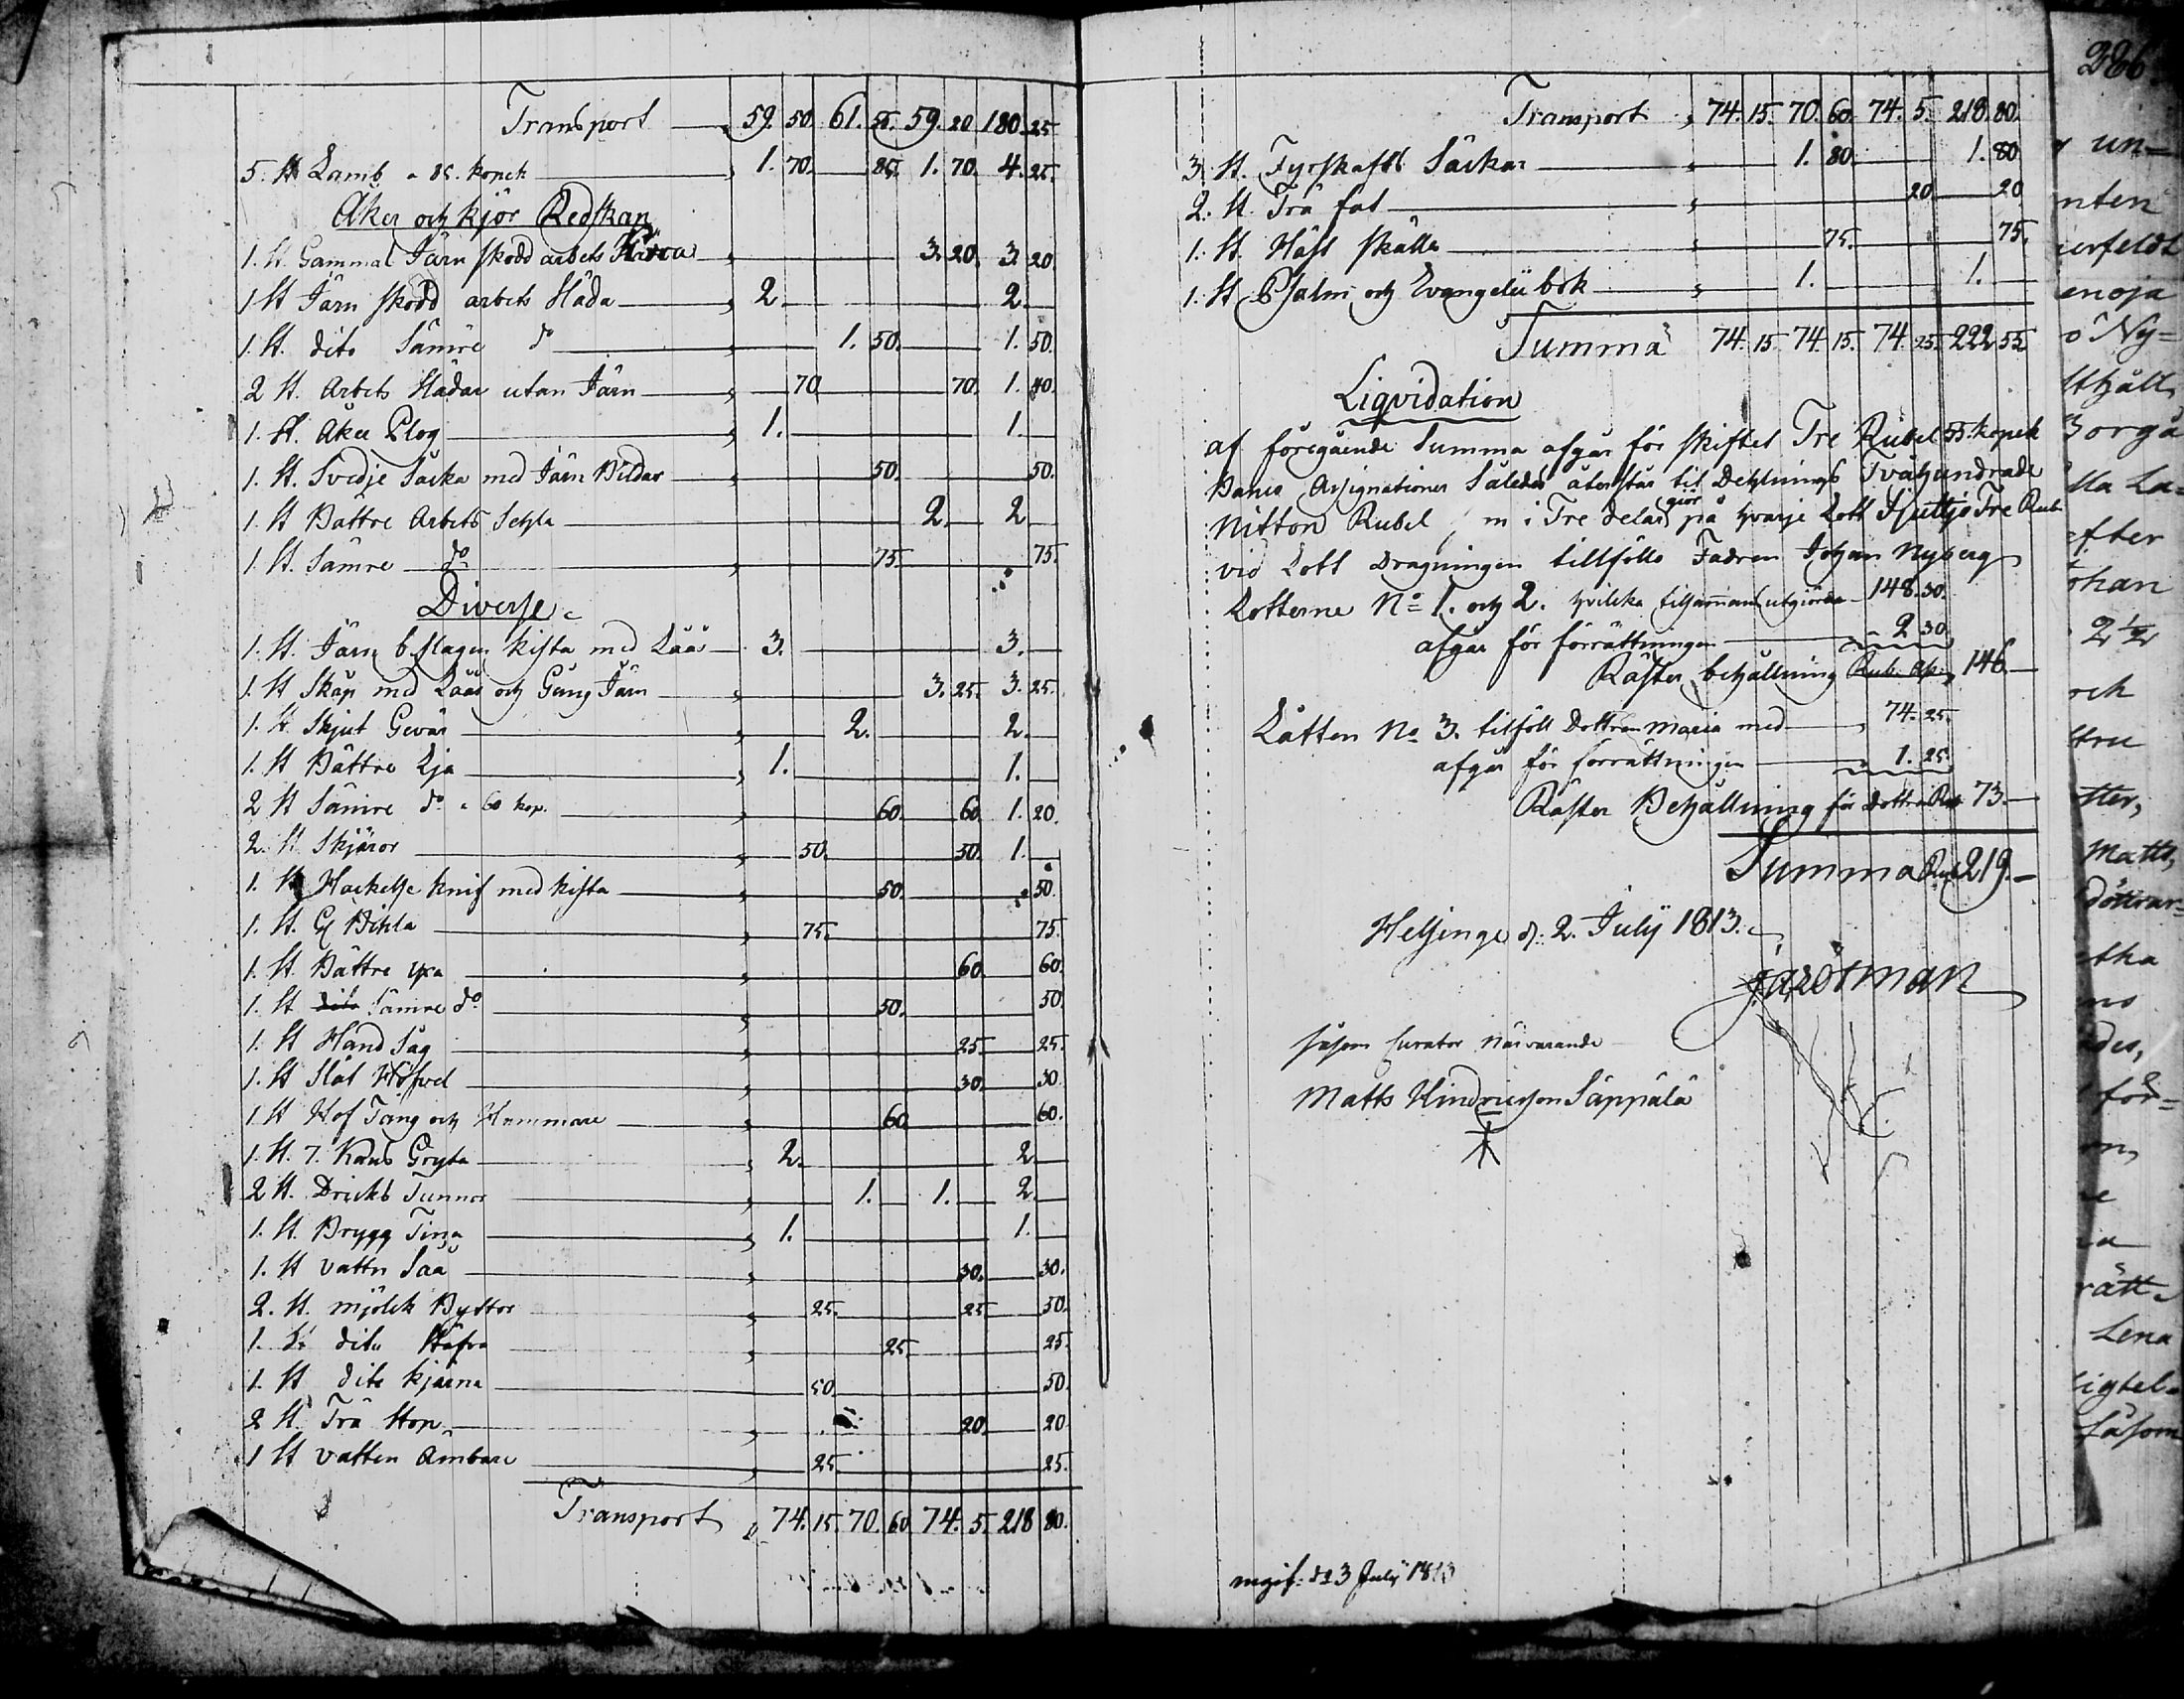 Transport 59. 50. 61. 55. 59. 20 180. 25
5. st Lamb a 85. kopek 1. 70. 85. 1. 70. 4. 25.
Åker och kjör Redskap
1. st Gammal Järn skodd arbets Kärra 3. 20. 3. 20.
1 st Järn skodd arbets Släda 2. 2.
1. st. dito Sämre do 1. 50. 1. 50.
2 st. Arbets Slädar utan Järn 70. 70. 1. 40.
1. st. Åker Plog 1. 1.
1. st. Svedje Sacka med Järn Bildar 50. 50.
1. st Battre Arbets Sehla 2. 2
1. st. Sämre do 75. 75.
Diverse
1. st. Järn beslagen kista med Låås 3. 3.
1. st Skåp med Låås och Gång Järn 3. 25. 3. 25.
1. st Skjut Gevär 2. 2.
1. st Bättre Lja 1. 1.
2 st Sämre do a 60 kop. 60. 60. 1. 20.
2. st. Skjäror 50. 50. 1.
1. st Hackelse knif med kista 50. 50.
1. st. Gl Bihla 75. 75.
1. st. Bättre yxa 60. 60.
1. st dito Sämre do 50. 50.
1. st Hand Såg 25. 25.
1. st Slät Höfvel 30. 30
1 st Hof Tång och Hammare 60. 60.
1. st. 7. kans Gryta 2. 2.
2 st. Dricks Tunnor 1. 1. 2.
1. st. Brygg Tina 1. 1.
1. st vattu Såå 30. 30.
2. st. mjölck Byttor 25. 25 50.
1. st dito Stäfva 25. 25.
1. st dito kjärna 50. 50.
2 st. Trä Stop 20. 20
1 st vatten Ämbare 25. 25.
Transport 74. 15. 70. 60 74. 5. 218 80.
Transport 74. 15. 70. 60. 74. 5. 218. 80.
3. st. Fyrskafts Säckar 1. 80. 1. 80
2. st. Trä fat 20 20
1. st. Häst skälla 75. 75.
1. st Psalm och Evangelii bok 1. 1.
Summa 74. 15. 74. 15. 74. 25. 222 55
Liqvidation
af föregående Summa afgår för skiftet Tre Rubel 55. kopek
Banco Assignationer Således återstår til Dehlnings Tvåhundrade
giör
Nitton Rubel, m i Tre delar på hvarje Lott Sjuttjo Tre Rub
vid Lott Dragningen tillföllo Fadren Johan Nyberg
Lotterne No 1. och 2. hvilcka tilsamans utgiörde 148. 30.
afgår för förrättningen 2 30
Räster behållning Rub. 146.
Låtten No 3. tilföll Dottren Maria med 74. 25.
afgår för förrättningen 1. 25.
Räster Behållning för Dottren Rub 73.
Summa Rub 219.
Helsinge d: 2. Julij 1813.
såsom Curator närvarande
Matts Hindricsson Säppälä
ingif: d 23 Julij 1813
386.
un=
nten
erfeldt
enoja
o Ny=
Borgå
lla La=
efter
ohan
2 1/2
och
tter,
Matts,
döttrar=
etha
ens
ades,
för=
rätt=
Lena
igtel=
såsom